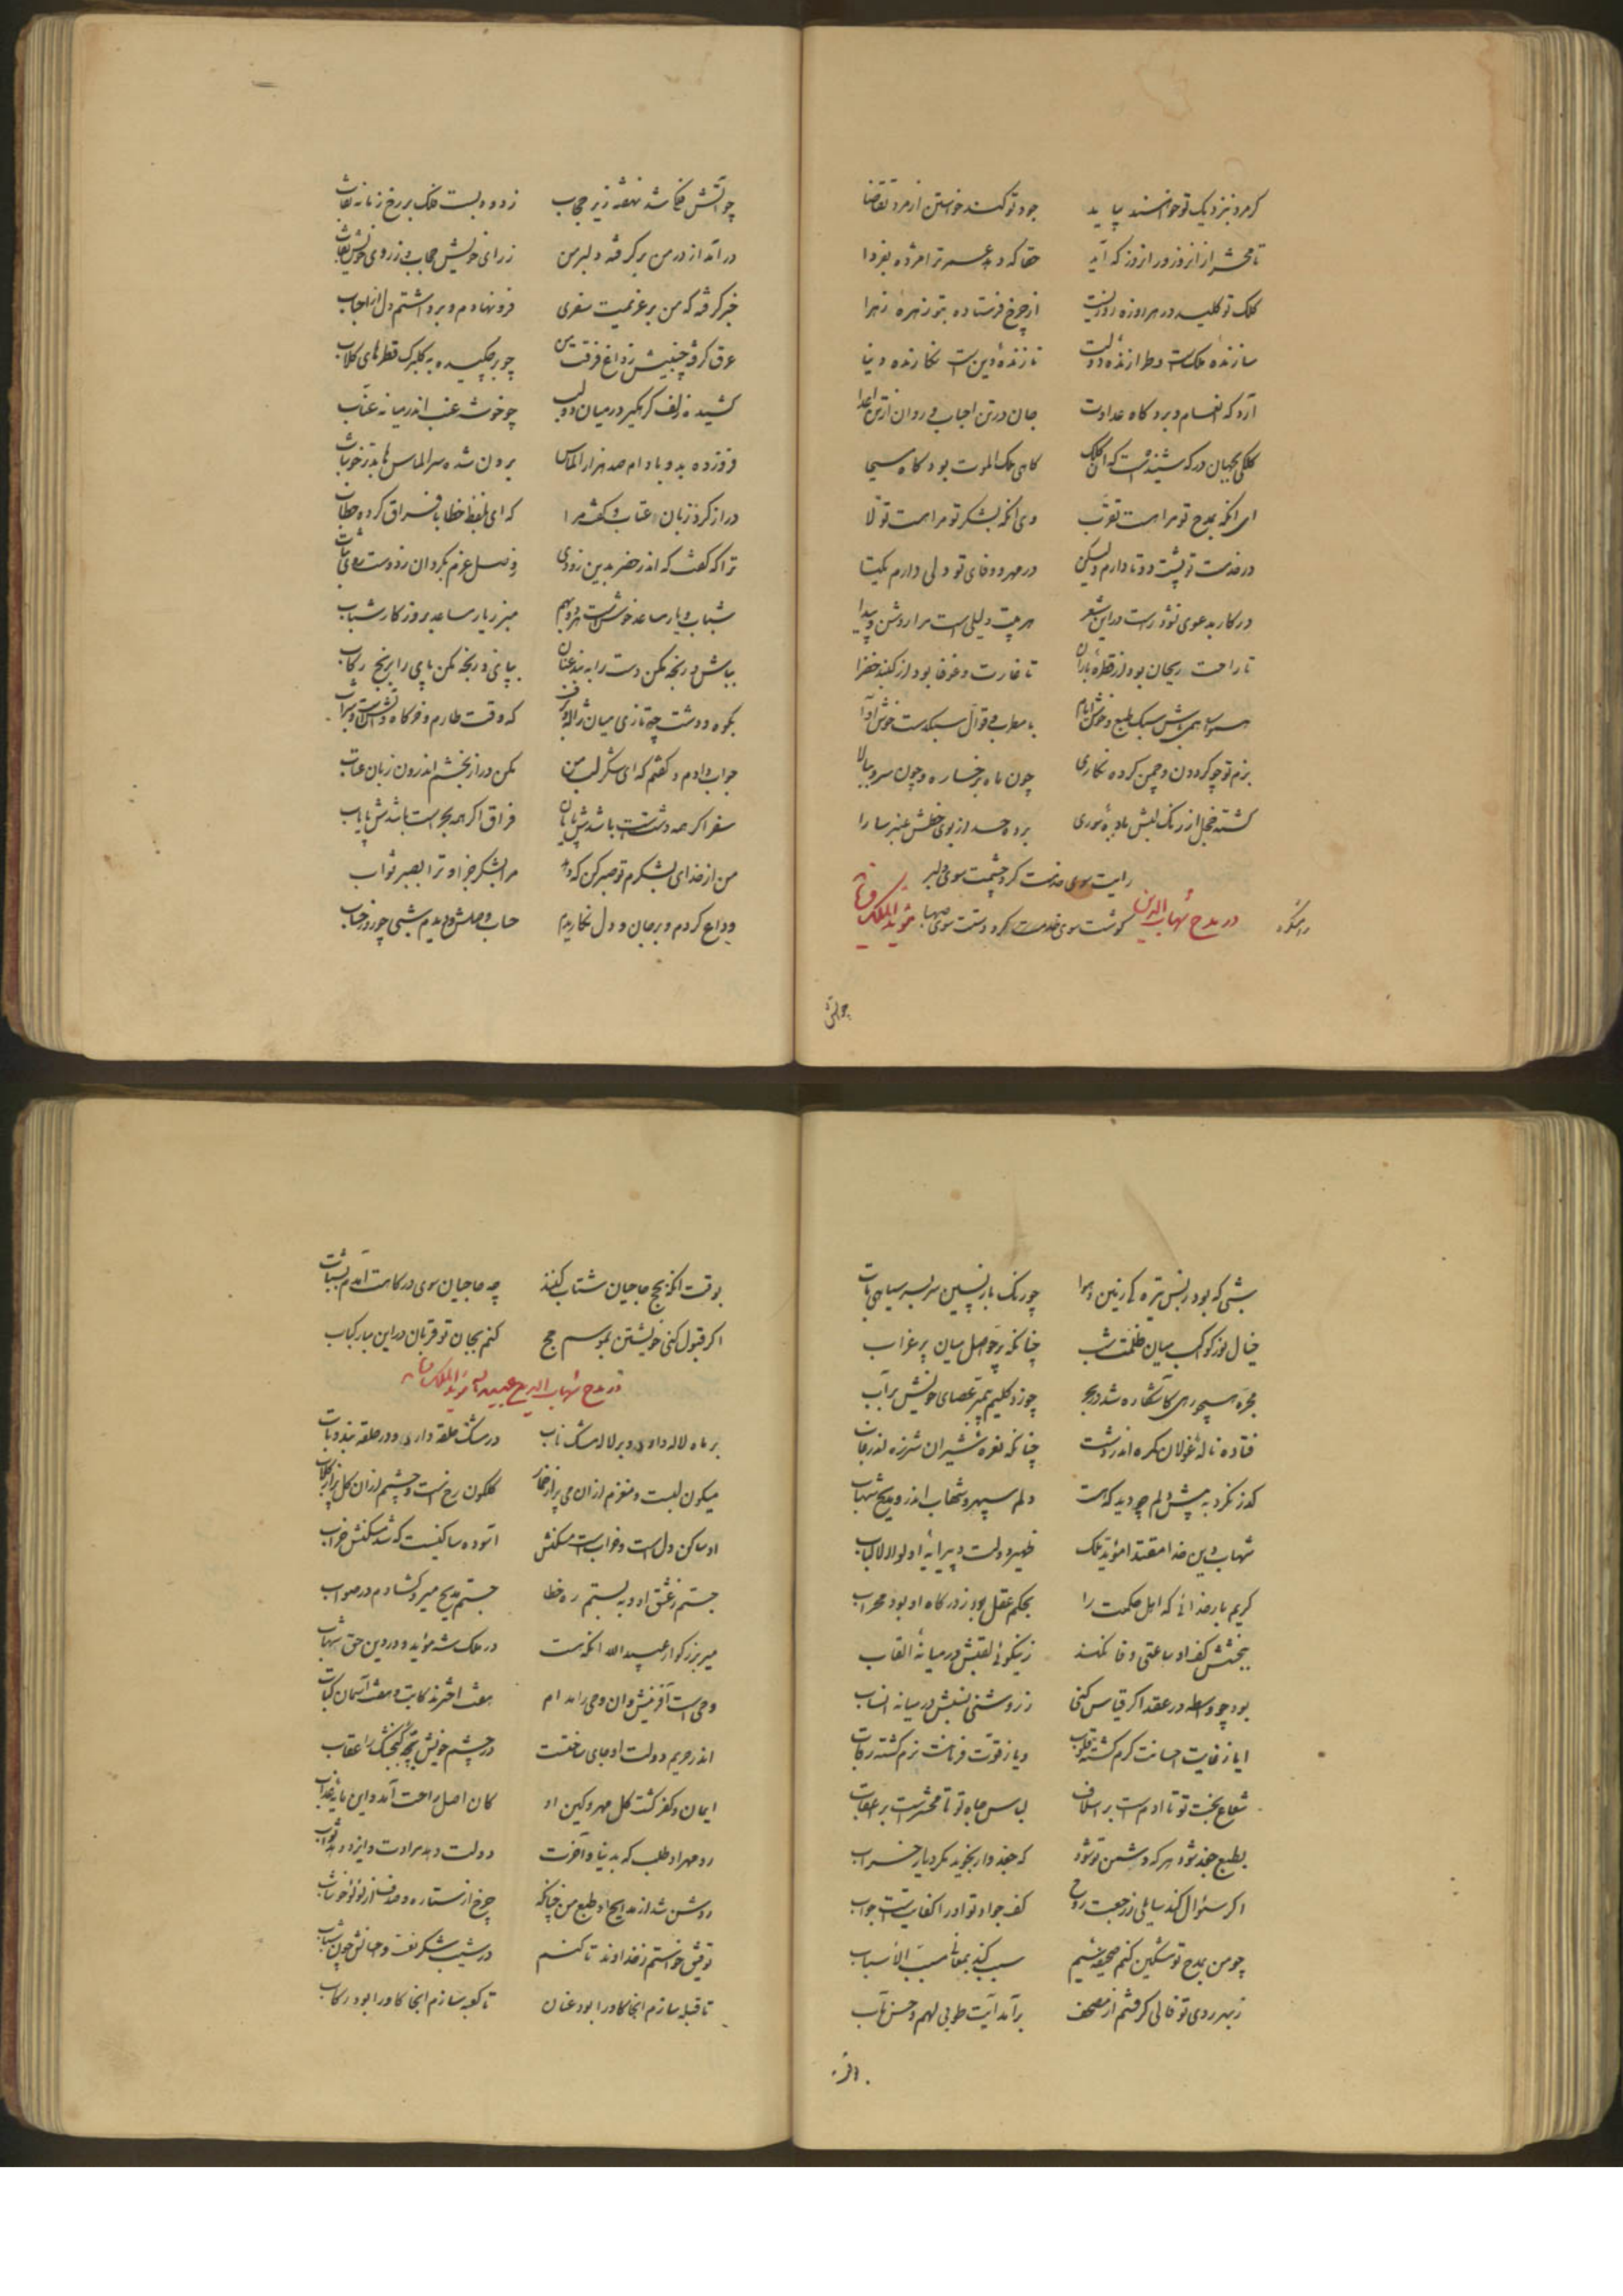 گر مرد بنزدیک تو خواهنده نیاید جود تو کند خواستن از مرد تقاضا
تا محشر از امروز در امروز که آید حقا که دهد عمر ترا مژده بفردا
کلک تو کلید در هر روزه روزیست از چرخ فرستاده بتو زهره زهرا
سازنده ملکست و طرازنده دولت نازنده دین است نگارنده دنیا
آرد گه انعام و برد گاه عداوت جان در تن احباب و روان از تن اعدا
کلکی بجهان در که شنیدست که آن کلک گاهی ملک الموت بود گاه مسیحا
ای آنکه بمدح تو مرا هست تقرب وی آنکه بشکر تو مرا هست تولا
در خدمت تو پشت دو تا دارم لیکن در مهر و وفای تو دلی دارم یکتا
در کار بدعوی تو راست در این شعر هر بیت دلیلی است مرا روشن و پیدا
تا راحت ریحان بود از قطره باران تا غارت و غوغا بود از گنبد خضرا
همواره همی باش سبک طبع و خوش ایام با مطرب و قوال سبکدست خوش آوا
بزم تو چو گردون و چمن کرده نگاری چون ماه برخساره و چون سرو ببالا
گشته خجل از رنگ لبش باده سوری برده حسد از بوی خطش عنبر سارا
رایت سوی خدمتگر و چشمت سوی دلبر
گوشت سوی خدمتگر و دستت سوی صهبا
در مدح شهاب الدین مؤید الملک
چو آتش فلکی شد نهفته زیر حجاب ز دود بست فلک بر رخ زمانه نقاب
درآمد از در من برگرفته دلبر من ز رای خویش حجاب و ز روی خویش نقاب
خبر گرفته که من بر عزیمت سفری فرو نهادم و برداشتم دل از احباب
عرق گرفته جبینش ز داغ فرقت من چو بر چکیده به گلبرگ قطرهای گلاب
کشیده زلف گره‌گیر در میان دو لب چو خوشه عنب اندر میانه عناب
فرو زده بدو بادام صد هزار الماس برون شده سر الماس‌ها بدر خوشاب
دراز کرد زبان عتاب و گفت مرا که ای بلفظ خطا با فراق کرده خطاب
ترا که گفت که اندر حضر بدین زودی ز وصل عزم بگردان ز دوست روی بتاب
شباب و یار مساعد خوش است هر دو بهم مبر ز یار مساعد بروزگار شباب
بباش و رنجه مکن دست را به بند عنان بپای و رنجه مکن پای را برنج رکاب
بکوه و دشت چه تازی میان ژاله و برف که وقت طارم و خرگاه و آتش است و شراب
جواب دادم و گفتم که ای شکر لب من مکن دراز بخشم اندرون زبان عتاب
سفر اگر همه دشتست باشدش پایان فراق اگر همه بحر است باشدش پایاب
من از خدای بشکرم تو صبر کن که دهد مرا بشکر جزا و ترا بصبر ثواب
وداع کردم و بر جان و دل نگاریدم حساب وصلش و دیدم شبی چو روز حساب
شبی که بود ز بس تیرگی زمین و هوا چو رنگ باز پسین سر بسر سیاهی ناب
خیال نور کواکب میان ظلمت شب چنانکه پر حواصل میان پر غراب
مجره همچو رهی کاشکاره شد در بحر چو زد کلیم پیمبر عصای خویش بر آب
فتاده ناله غولان مکره اندر دشت چنانکه نعره شیران شرزه اندر غاب
گذر نکرد به پیش دلم چو دید که هست دلم سپهر و شهاب اندرو مدیح شهاب
شهاب دین خدا مقتدا مؤید ملک ظهیر دولت و پیرایه اولوالالباب
کریم بار خدائی که اهل حکمت را بحکم عقل بود درگاه او بود محراب
ببخشش کف او ساعتی وفا نکند
ز نیکوئی لقبش در میانه القاب
بود چو واسطه در عقد اگر قیاس کنی ز روشنی نسبش در میانه انساب
ایا ز غایت احسانت گرم گشته قلوب و یا ز قوت فرمانت نرم گشته رقاب
شعاع بخت تو تا آدم است بر اسلاف لباس جاه تو تا محشر است بر اعقاب
بطبع جغد شود هر که دشمن تو شود که جغد وار نجوید مگر دیار خراب
اگر سؤال کند سایلی ز رجعت روح کف جواد تو او را کفایتست جواب
چو من بمدح تو مشکین کنم صحیفه سیم سبب کند بمعانی مسبب الاسباب
ز بهر روی تو فالی گرفتم از مصحف برآمد آیت طوبی لهم و حسن مآب
بوقت آنکه بحج حاجیان شتاب کنند چه حاجیان سوی درگاهت آمدم بشتاب
اگر قبول کنی خویشتن بموسم حج کنم بجان تو قربان در این مبارک باب
در مدح شهاب الدین عبیدالله مؤید الملک
بر ماه لاله داری و بر لاله مشک ناب در مشک حلقه داری و در حلقه بند و تاب
میگون لبست و مغزم از آن می پر از خمار گلگون رخ است و چشمم از آن گل پر از گلاب
او ساکن دل است و خراب است مسکنش آسوده ساکنیست که شد مسکنش خراب
جستم ز عشق او و ببستم ره خطا جستم مدیح میر و گشادم در صواب
میر بزرگوار عبیدالله آنکه هست در ملک شه مؤید و در دین حق شهاب
اندر حریم دولت او جای ساختست در چشم خویش بچه گنجشک را عقاب
ایمان و کفر گشت کل مهر و کین او کان اصل راحت آمد و این مایه عذاب
رو مهر او طلب که بدنیا و آخرت دولت دهد مرادت و ایزد دهد ثواب
روشن شد از مدایح او طبع من چنانکه چرخ از ستاره و صدف از لؤلؤ خوشاب
توفیق خواستم ز خداوند تا کنم در شیب شکر نعمت و جانش چون شباب
تا قبله سازم آنجا کاو را بود عنان تا کعبه سازم آنجا کاو را بود رکاب